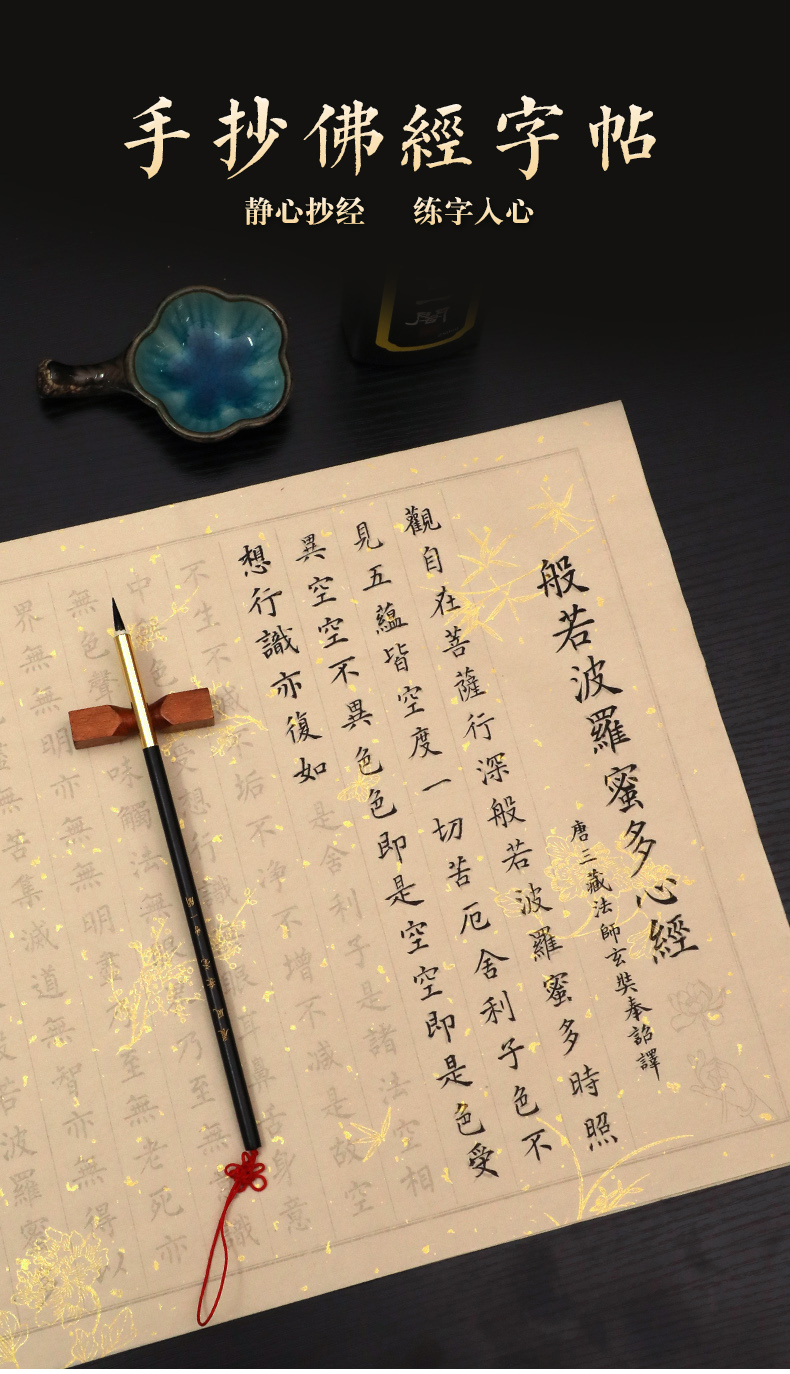 手抄佛經字帖
静心抄经 练字入心
般若波羅蜜多心經
唐三藏法師玄奘奉詔譯
觀自在菩薩行深般若波羅蜜多時照
見五蘊皆空度一切苦厄舍利子色不
異空空不異色色即是空空即是色受
想行識亦復如是舍利子是諸法空相
不生不滅不垢不净不增不減是故空
中色受想行識眼耳鼻舌身意
無色聲味觸法無乃至無識
界無無明亦無無明盡至無老死亦
無苦集滅道無智亦無得以
若波羅蜜